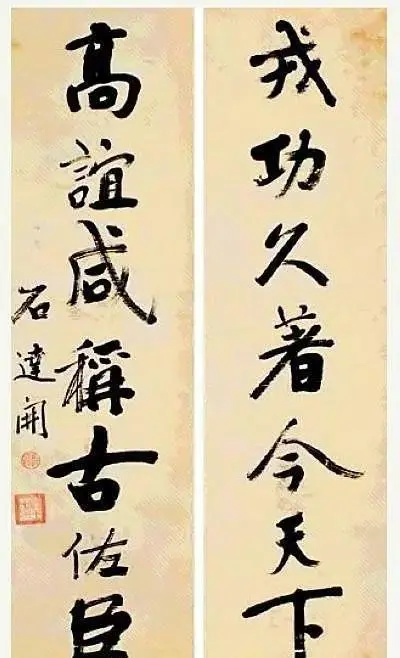 戎功久著今天下
高誼咸稱古佐臣
石達開